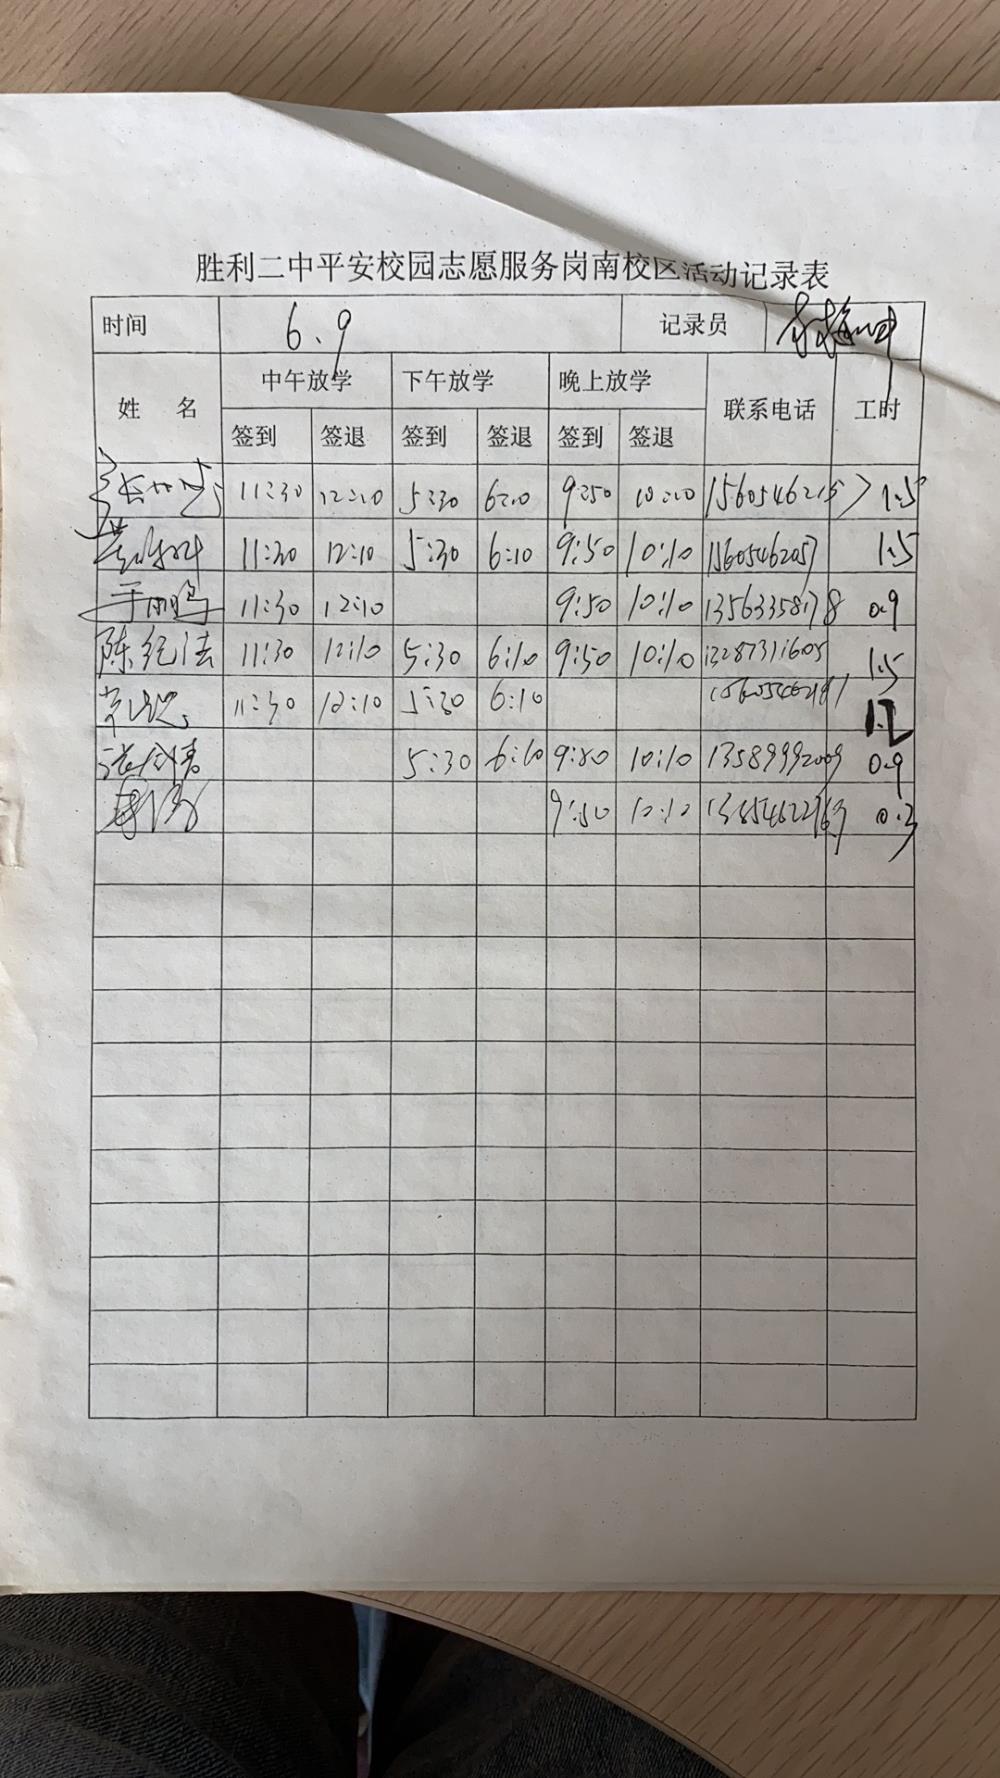 胜利二中平安校园志愿服务岗南校区活动记录表
时间 6.9 记录员
姓 名 中午放学 下午放学 晚上放学 联系电话 工时
签到 签退 签到 签退 签到 签退
11:30 12:10 5:30 6:10 9:50 10:10 1.5
11:30 12:10 5:30 6:10 9:50 10:10 15605462057 1.5
11:30 12:10 9:50 10:10 13563358178 0.9
陈纪法 11:30 12:10 5:30 6:10 9:50 10:10 13287311605 1.5
11:30 12:10 5:30 6:10 1.2
5:30 6:10 9:50 10:10 13589992009 0.9
9:50 10:10 0.3